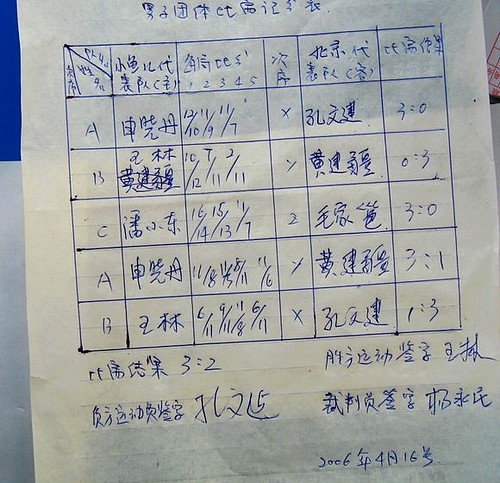 男子团体比赛记分表
小鱼儿代 各局比分 次 北京代 比赛结果
表队(主) 1 2 3 4 5 序 表队(客)
A 申晓丹 12/10 11/9 11/7 X 孔文建 3:0
王林
B 黄建疆 10/12 7/11 2/11 Y 黄建疆 0:3
C 潘小东 16/14 15/13 11/7 Z 毛家苞 3:0
A 申晓丹 11/8 Y 黄建疆 3:1
B 王林 6/11 9/11 11/8 6/11 X 孔文建 1:3
比赛结果 3:2 胜方运动签字 王林
负方运动员签字 孔文建 裁判员签字 杨永民
2006年4月16号